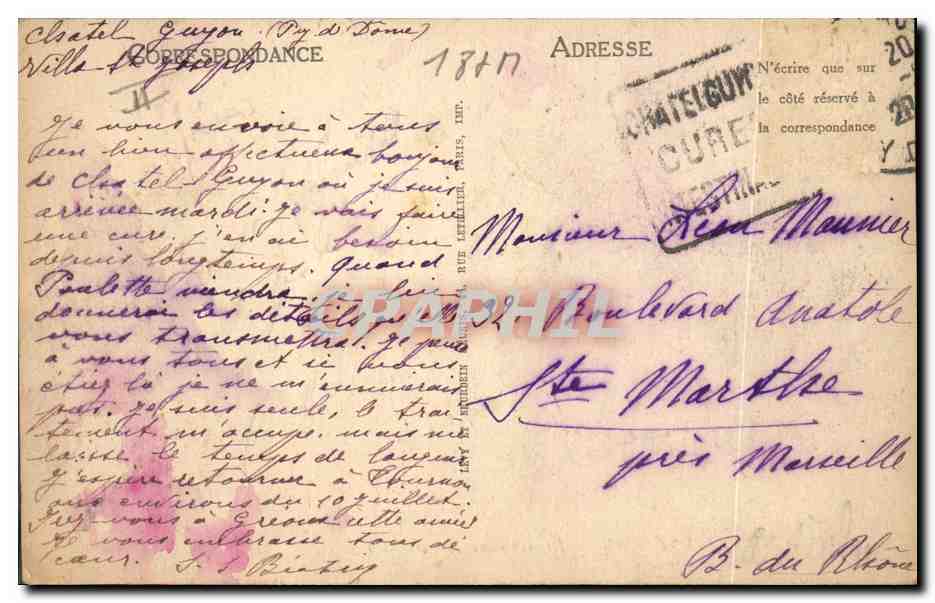 Chatel Guyon (Py d Dome)
Villa St Joseph
CORRESPONDANCE
ADRESSE
N'écrire que sur
le côté réservé à
la correspondance
II
CHATELGUY
CURE
Je vous envoie à tous
un bon affectueux bonjour
de Chatel Guyon où je suis
arrivée mardi. Je vais faire
une cure. j'en ai besoin
depuis longtemps. Quand
Paulette viendra je lui
donnerai les détails
vous transmettra. Je pense
à vous tous et si vous
étiez là je ne m'ennuierais
pas. Je suis seule, le trai
tement m'occupe. mais me
laisse le temps de
J'espère retourner à Tournon
aux environs du 10 juillet.
Irez-vous à Gréoux cette année
Je vous embrasse tous de
cœur.
LEVY ET NEURDEIN RUE LETELLIER, PARIS, IMP.
Monsieur Léon Maunier
92 Boulevard Anatole
Ste Marthe
près Marseille
B. du Rhône
CARPHIL